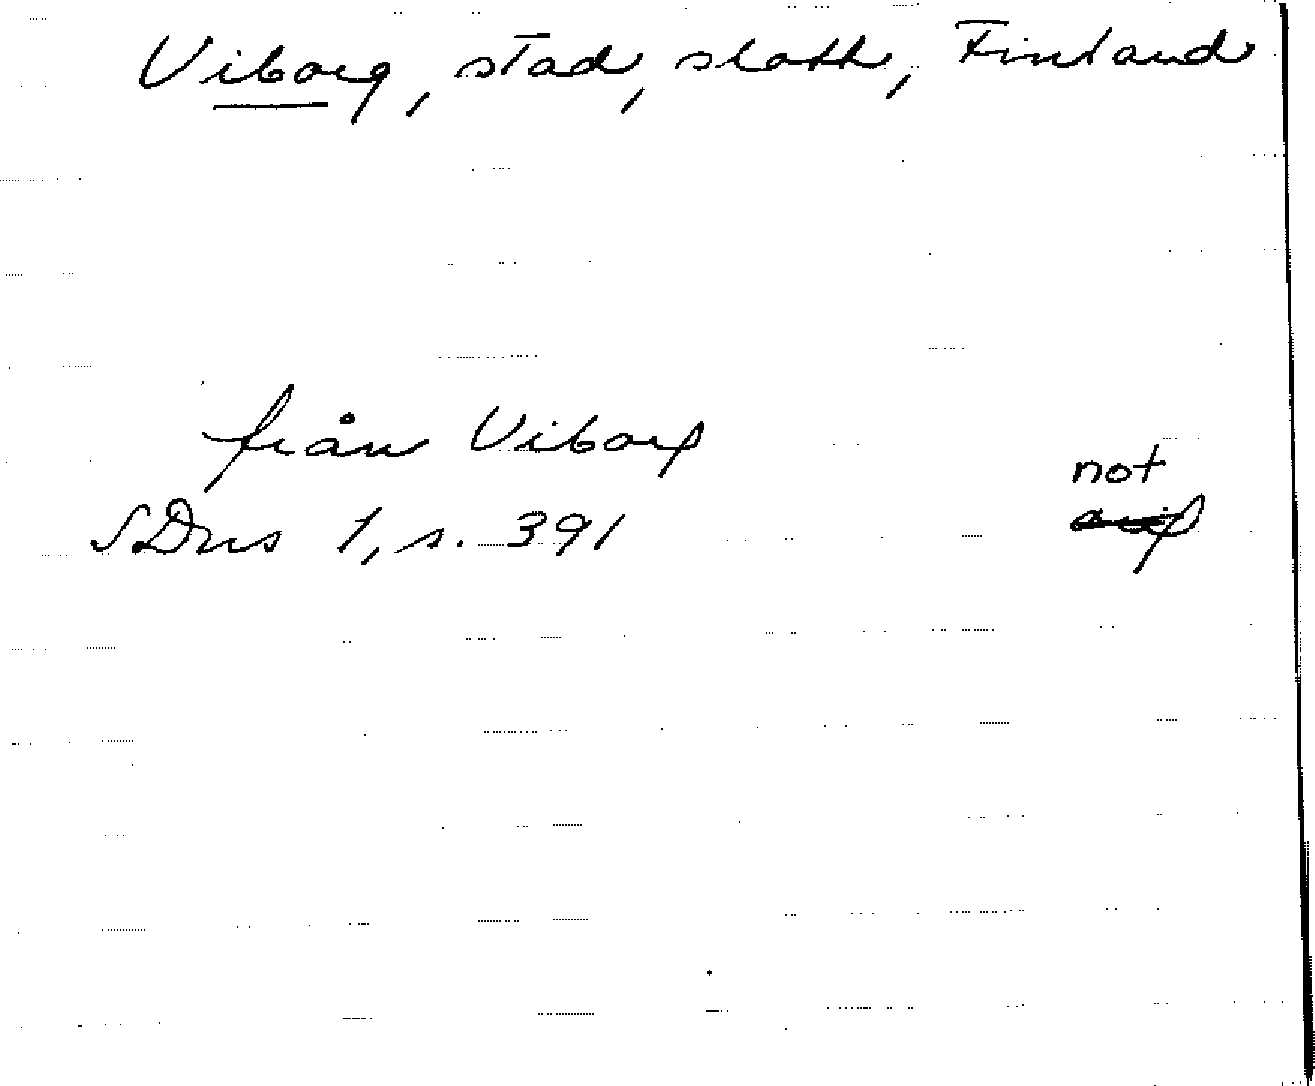 Viborg, stad, slott, Finland
från Viborg
not
SDns 1, s. 391